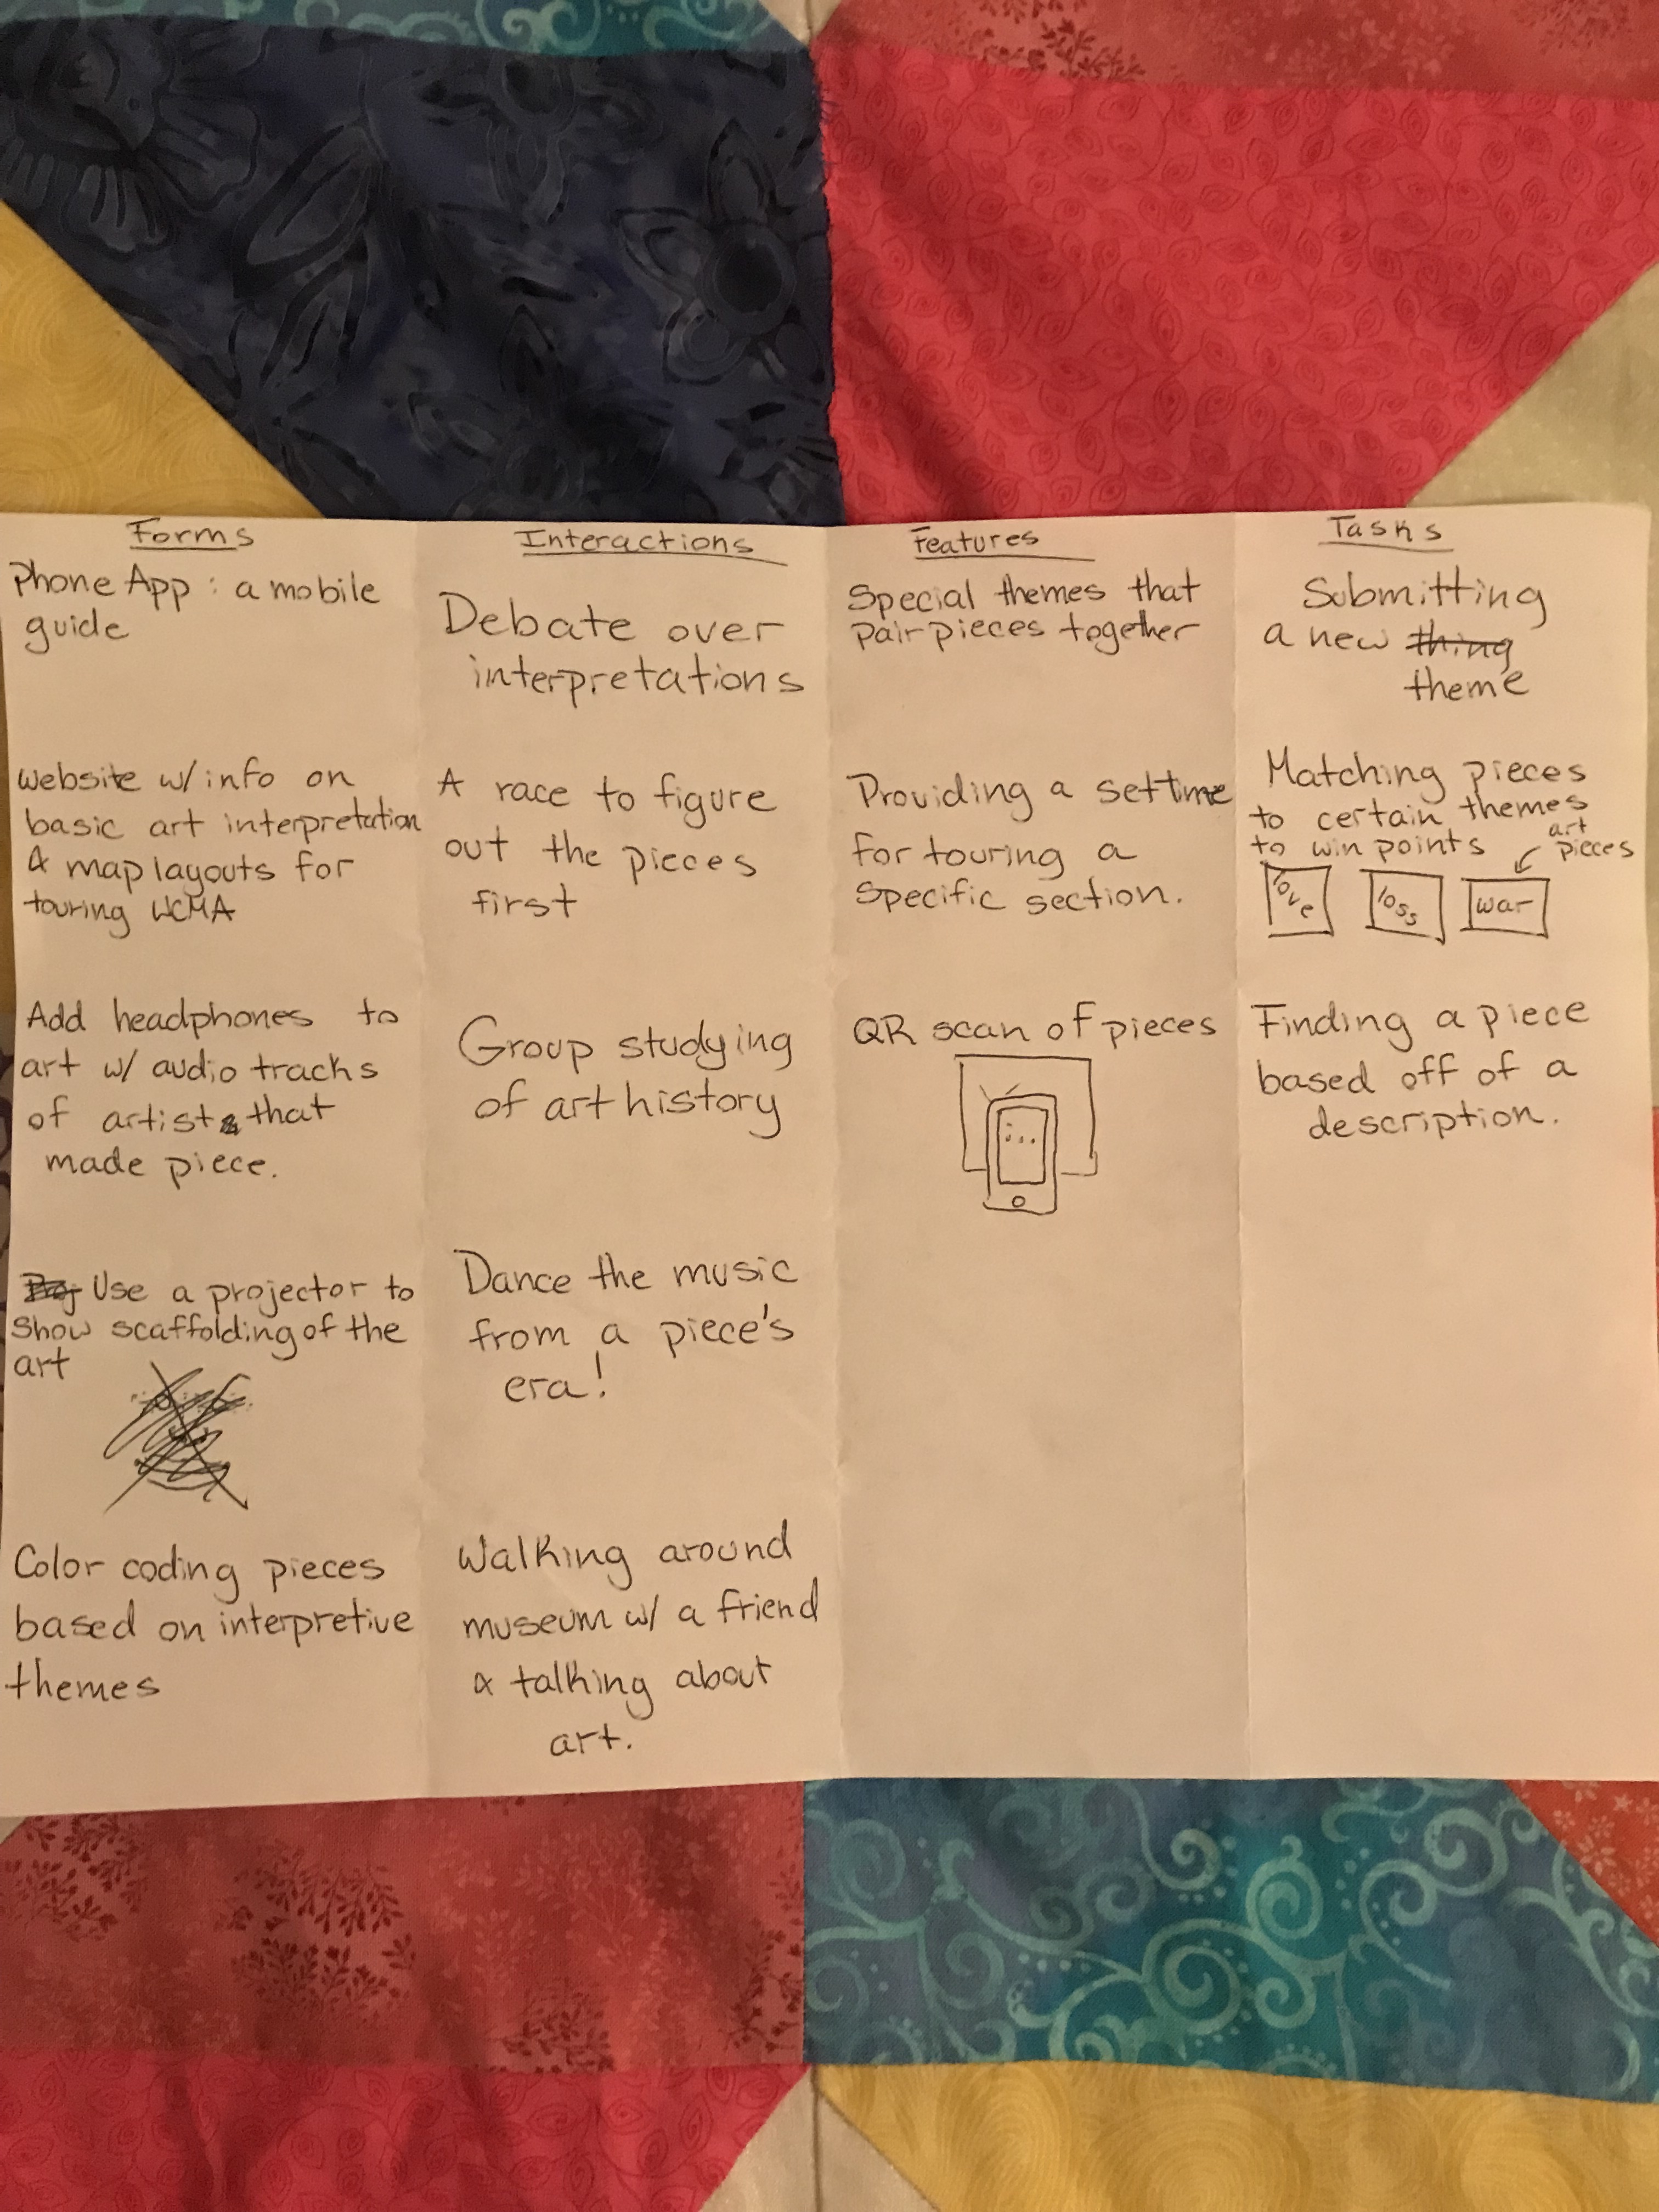 Forms
Phone App : a mobile
guide
website w/ info on
basic art interpretation
& map layouts for
touring WCMA
Add headphones to
art w/ audio tracks
of artist that
made piece.
Use a projector to
show scaffolding of the
art
Color coding pieces
based on interpretive
themes
Interactions
Debate over
interpretations
A race to figure
out the pieces
first
Group studying
of art history
Dance the music
from a piece's
era!
Walking around
museum w/ a friend
& talking about
art.
Features
Special themes that
pair pieces together
Providing a set time
for touring a
specific section.
QR scan of pieces
Tasks
Submitting
a new thing
theme
Matching pieces
to certain themes
to win points
art
pieces
love loss war
Finding a piece
based off of a
description.